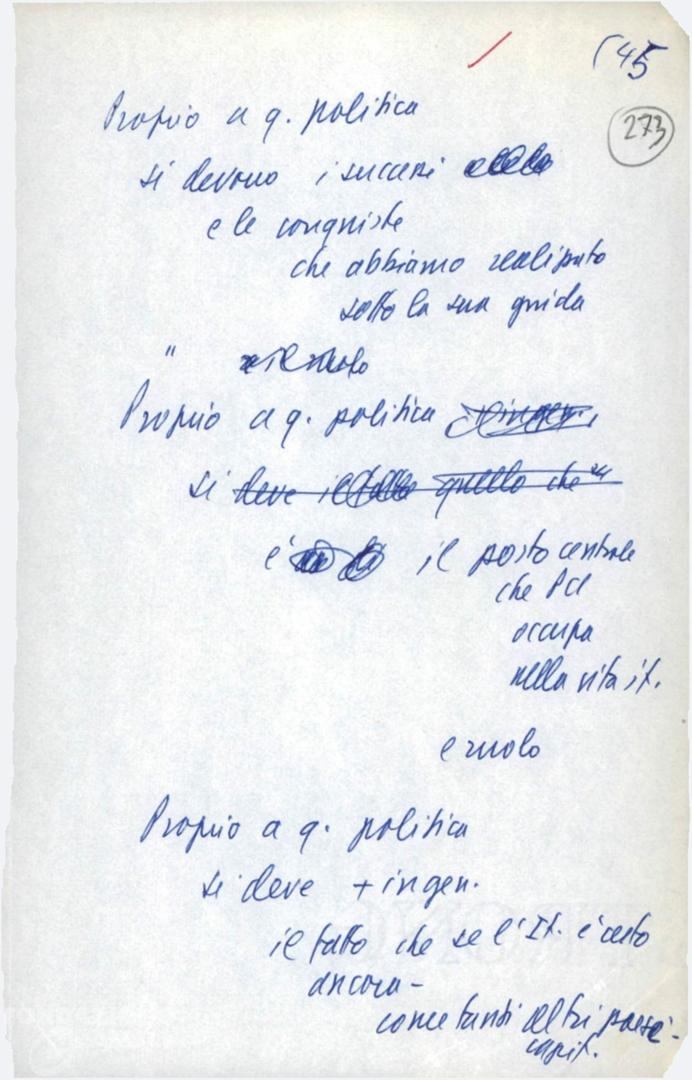 (45
273
Proprio a q. politica
si devono i successi
e le conquiste
che abbiamo realizzato
sotto la sua guida
" il ruolo
Proprio a q. politica + in gen.
si deve il fatto quello che
è il posto centrale
che PCI
occupa
nella vita it.
e ruolo
Proprio a q. politica
si deve + in gen.
il fatto che se l'It. è certo
ancora -
come tanti altri paesi -
capit.